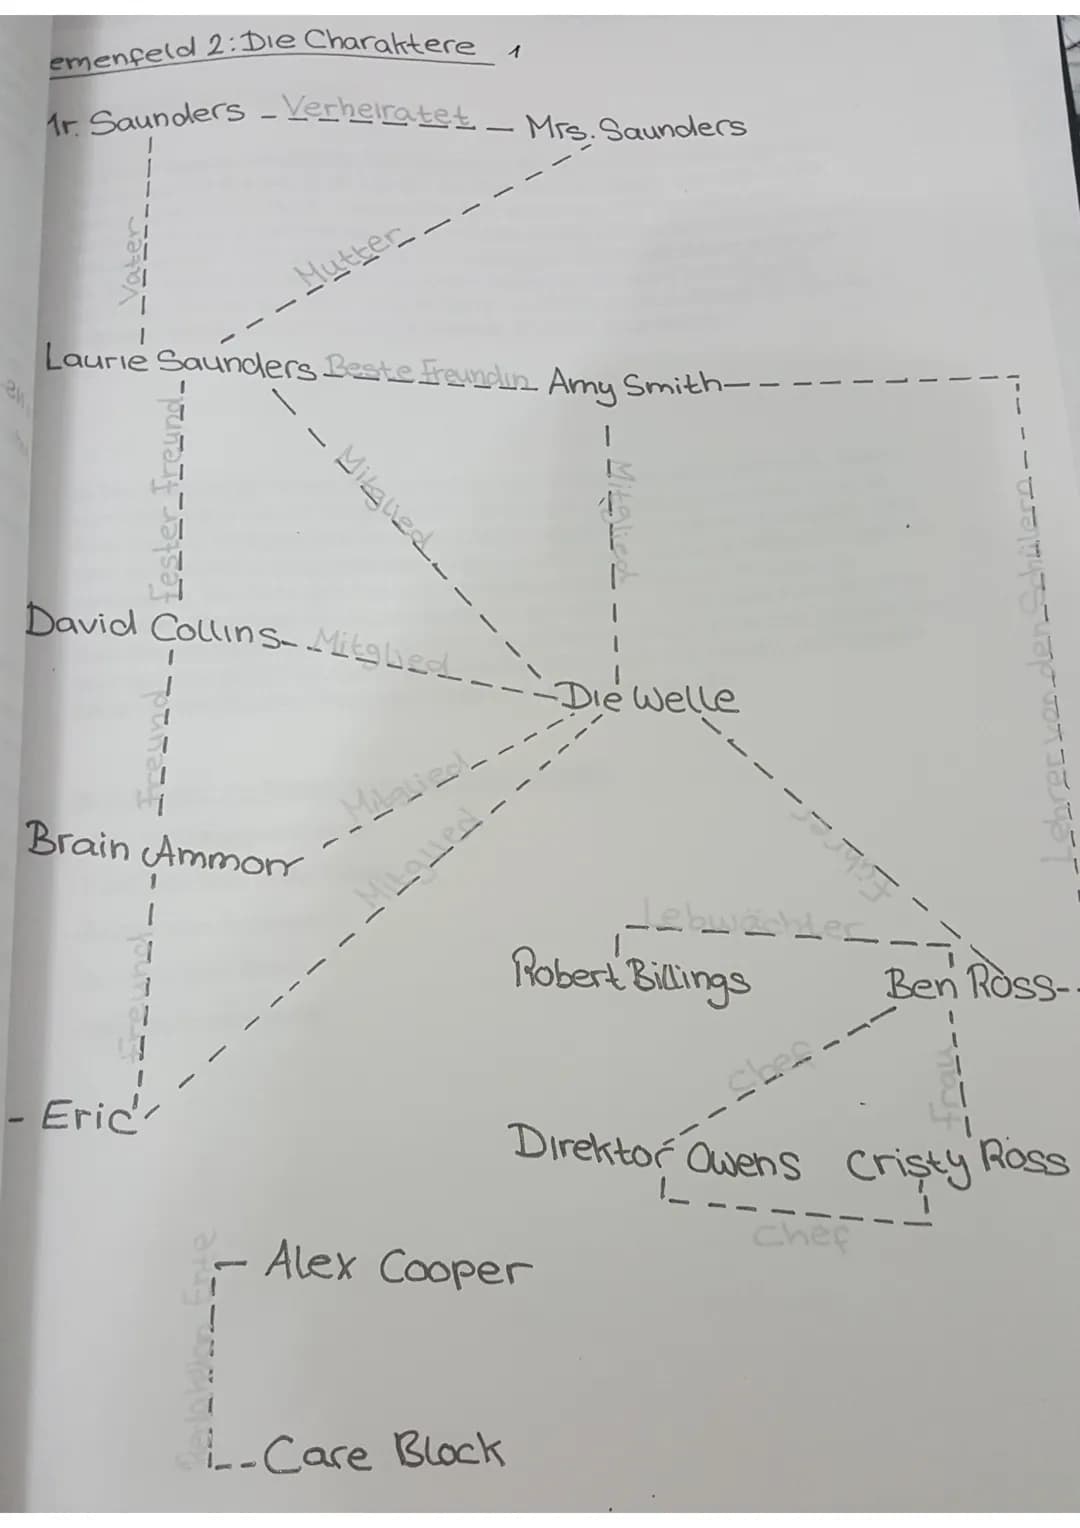 emenfeld 2: Die Charaktere 1
1r. Saunders - Verheiratet - Mrs. Saunders
Vater
Mutter
Laurie Saunders Beste Freundin Amy Smith
fester Freund
Mitglied
Mitglied
Lehrer von den Schülern
David Collins Mitglied
Die Welle
Freund
Mitglied
Mitglied
Führer
Brain Ammon
Freund
Lebwächter
Robert Billings Ben Ross
Chef
Frau
- Eric
Direktor Owens Cristy Ross
Chef
Alex Cooper
Ente
Care Block